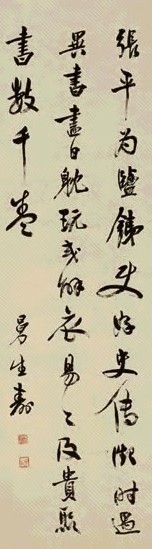 張平為鹽鐵使好史傳微時遇
異書盡日耽玩或解衣易之及貴聚
書數千卷
曼生壽